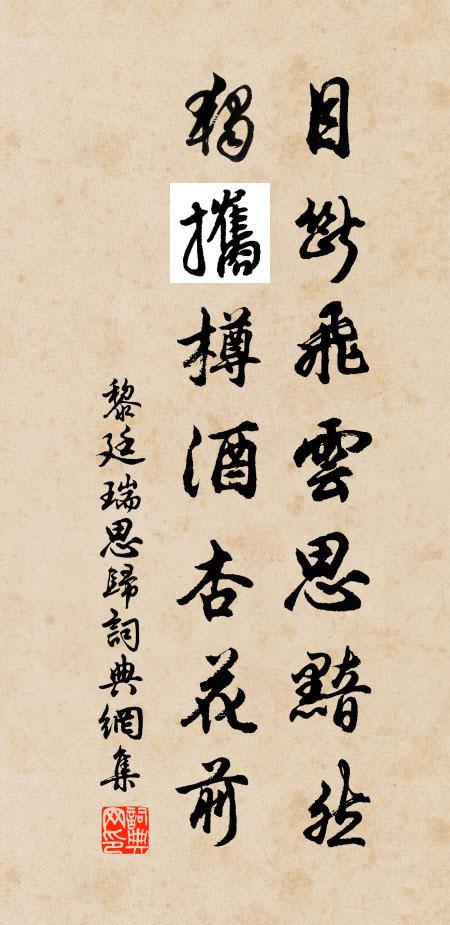 目斷飛雲思黯然
獨攜樽酒杏花前
黎廷瑞思歸詞典網集
詞典網印